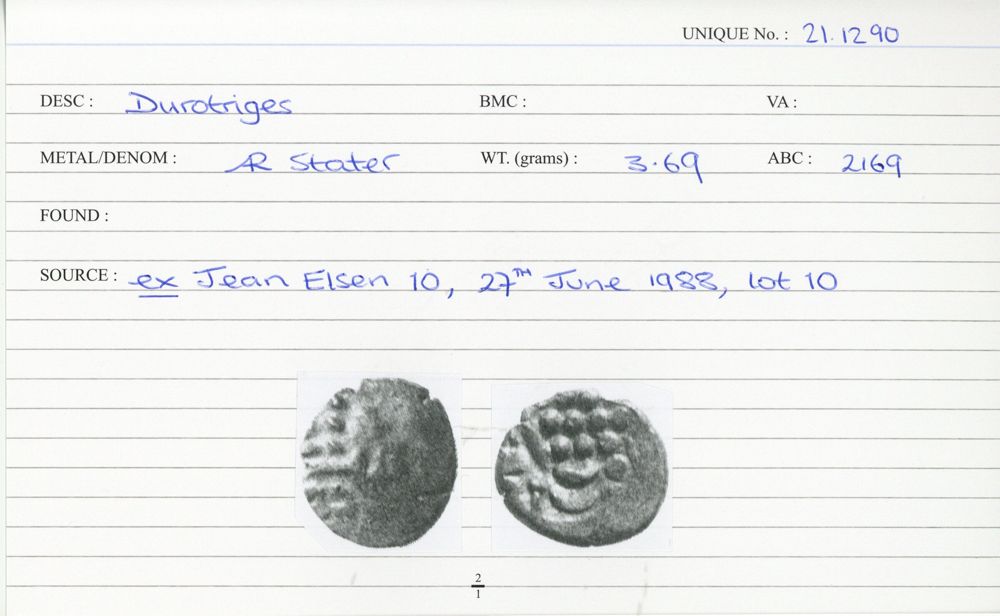 UNIQUE No. : 21.12 90
DESC : Durotriges BMC : VA :
METAL/DENOM : AR Stater WT. (grams) : 3.69 ABC : 2169
FOUND :
SOURCE : ex Jean Elsen 10, 27TH June 1988, lot 10
2
1